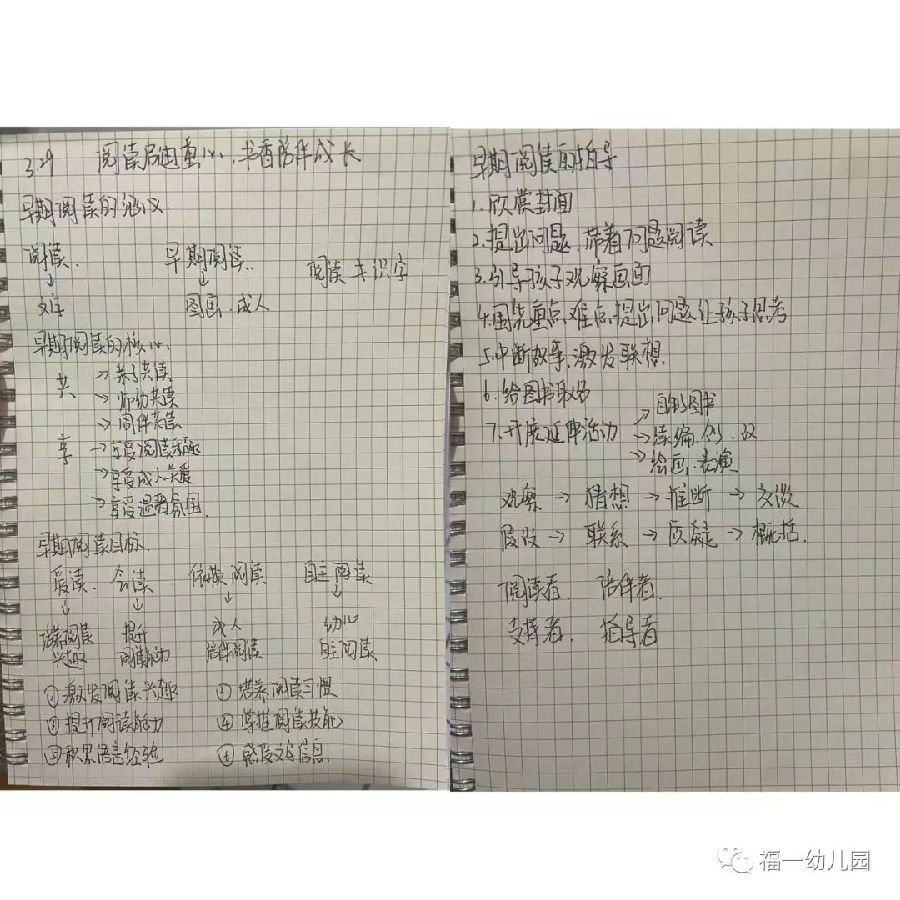 3.29 阅读启迪童心,书香陪伴成长
早期阅读的涵义
阅读 早期阅读 阅读≠识字
↓ ↓
文字 图画.成人
早期阅读的核心
共 → 亲子共读
→ 师幼共读
→ 同伴共读
享 → 享受阅读乐趣
→ 享受成人关爱
→ 享受温馨氛围
早期阅读目标
爱读 会读 依赖阅读 自主阅读
↓ ↓ ↓ ↓
培养阅读兴趣 提升阅读能力 成人陪伴阅读 幼儿自主阅读
①激发阅读兴趣 ②培养阅读习惯
③提升阅读能力 ④掌握阅读技能
⑤积累语言经验 ⑥感受文字信息
早期阅读面指导
1.欣赏封面
2.提出问题,带着问题阅读
3.引导孩子观察画面
4.围绕重点、难点,提出问题,让孩子思考
5.中断故事,激发联想
6.给图书取名
7.开展延伸活动 → 自制图书
→ 续编、创、改
→ 绘画、表演
观察 → 猜想 → 推断 → 交谈
假设 → 联系 → 质疑 → 概括.
阅读者. 陪伴者.
支持者. 指导者
福一幼儿园